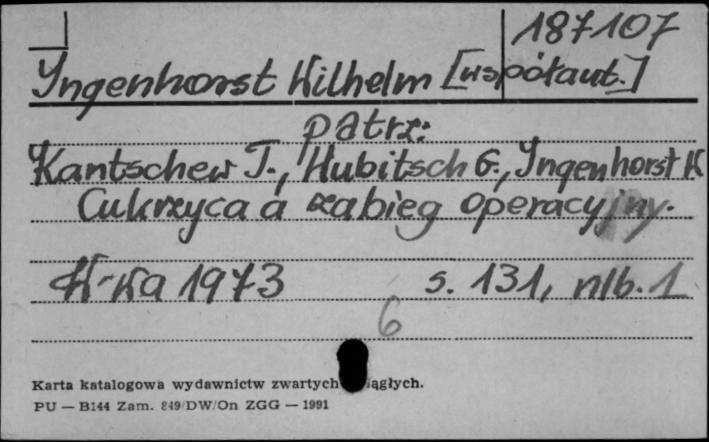 187107
Yngenhorst Kilhelm [współaut.]
patrz:
Kantschew J., Hubitsch G., Yngenhorst K
Cukrzyca a zabieg operacyjny.
K-ka 1973 s. 131, nlb. 1
6
Karta katalogowa wydawnictw zwartych ągłych.
PU — B144 Zam. 849/DW/On ZGG — 1991